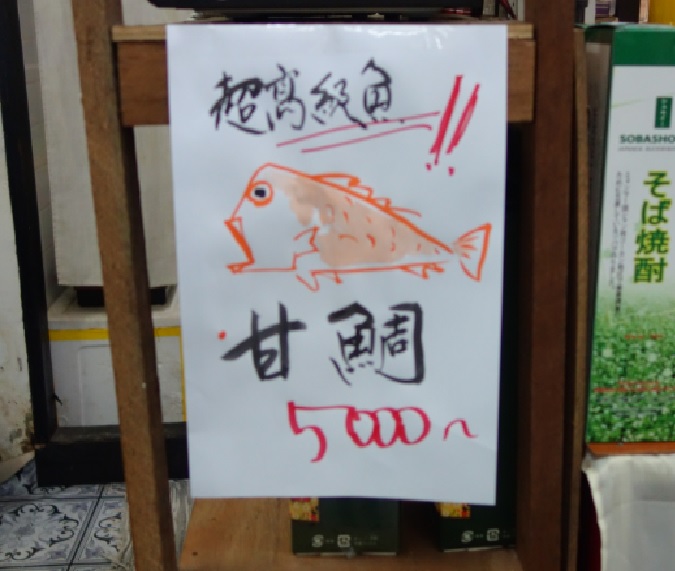 超高級魚!!
甘鯛
5000~
SOBASHO
そば焼酎